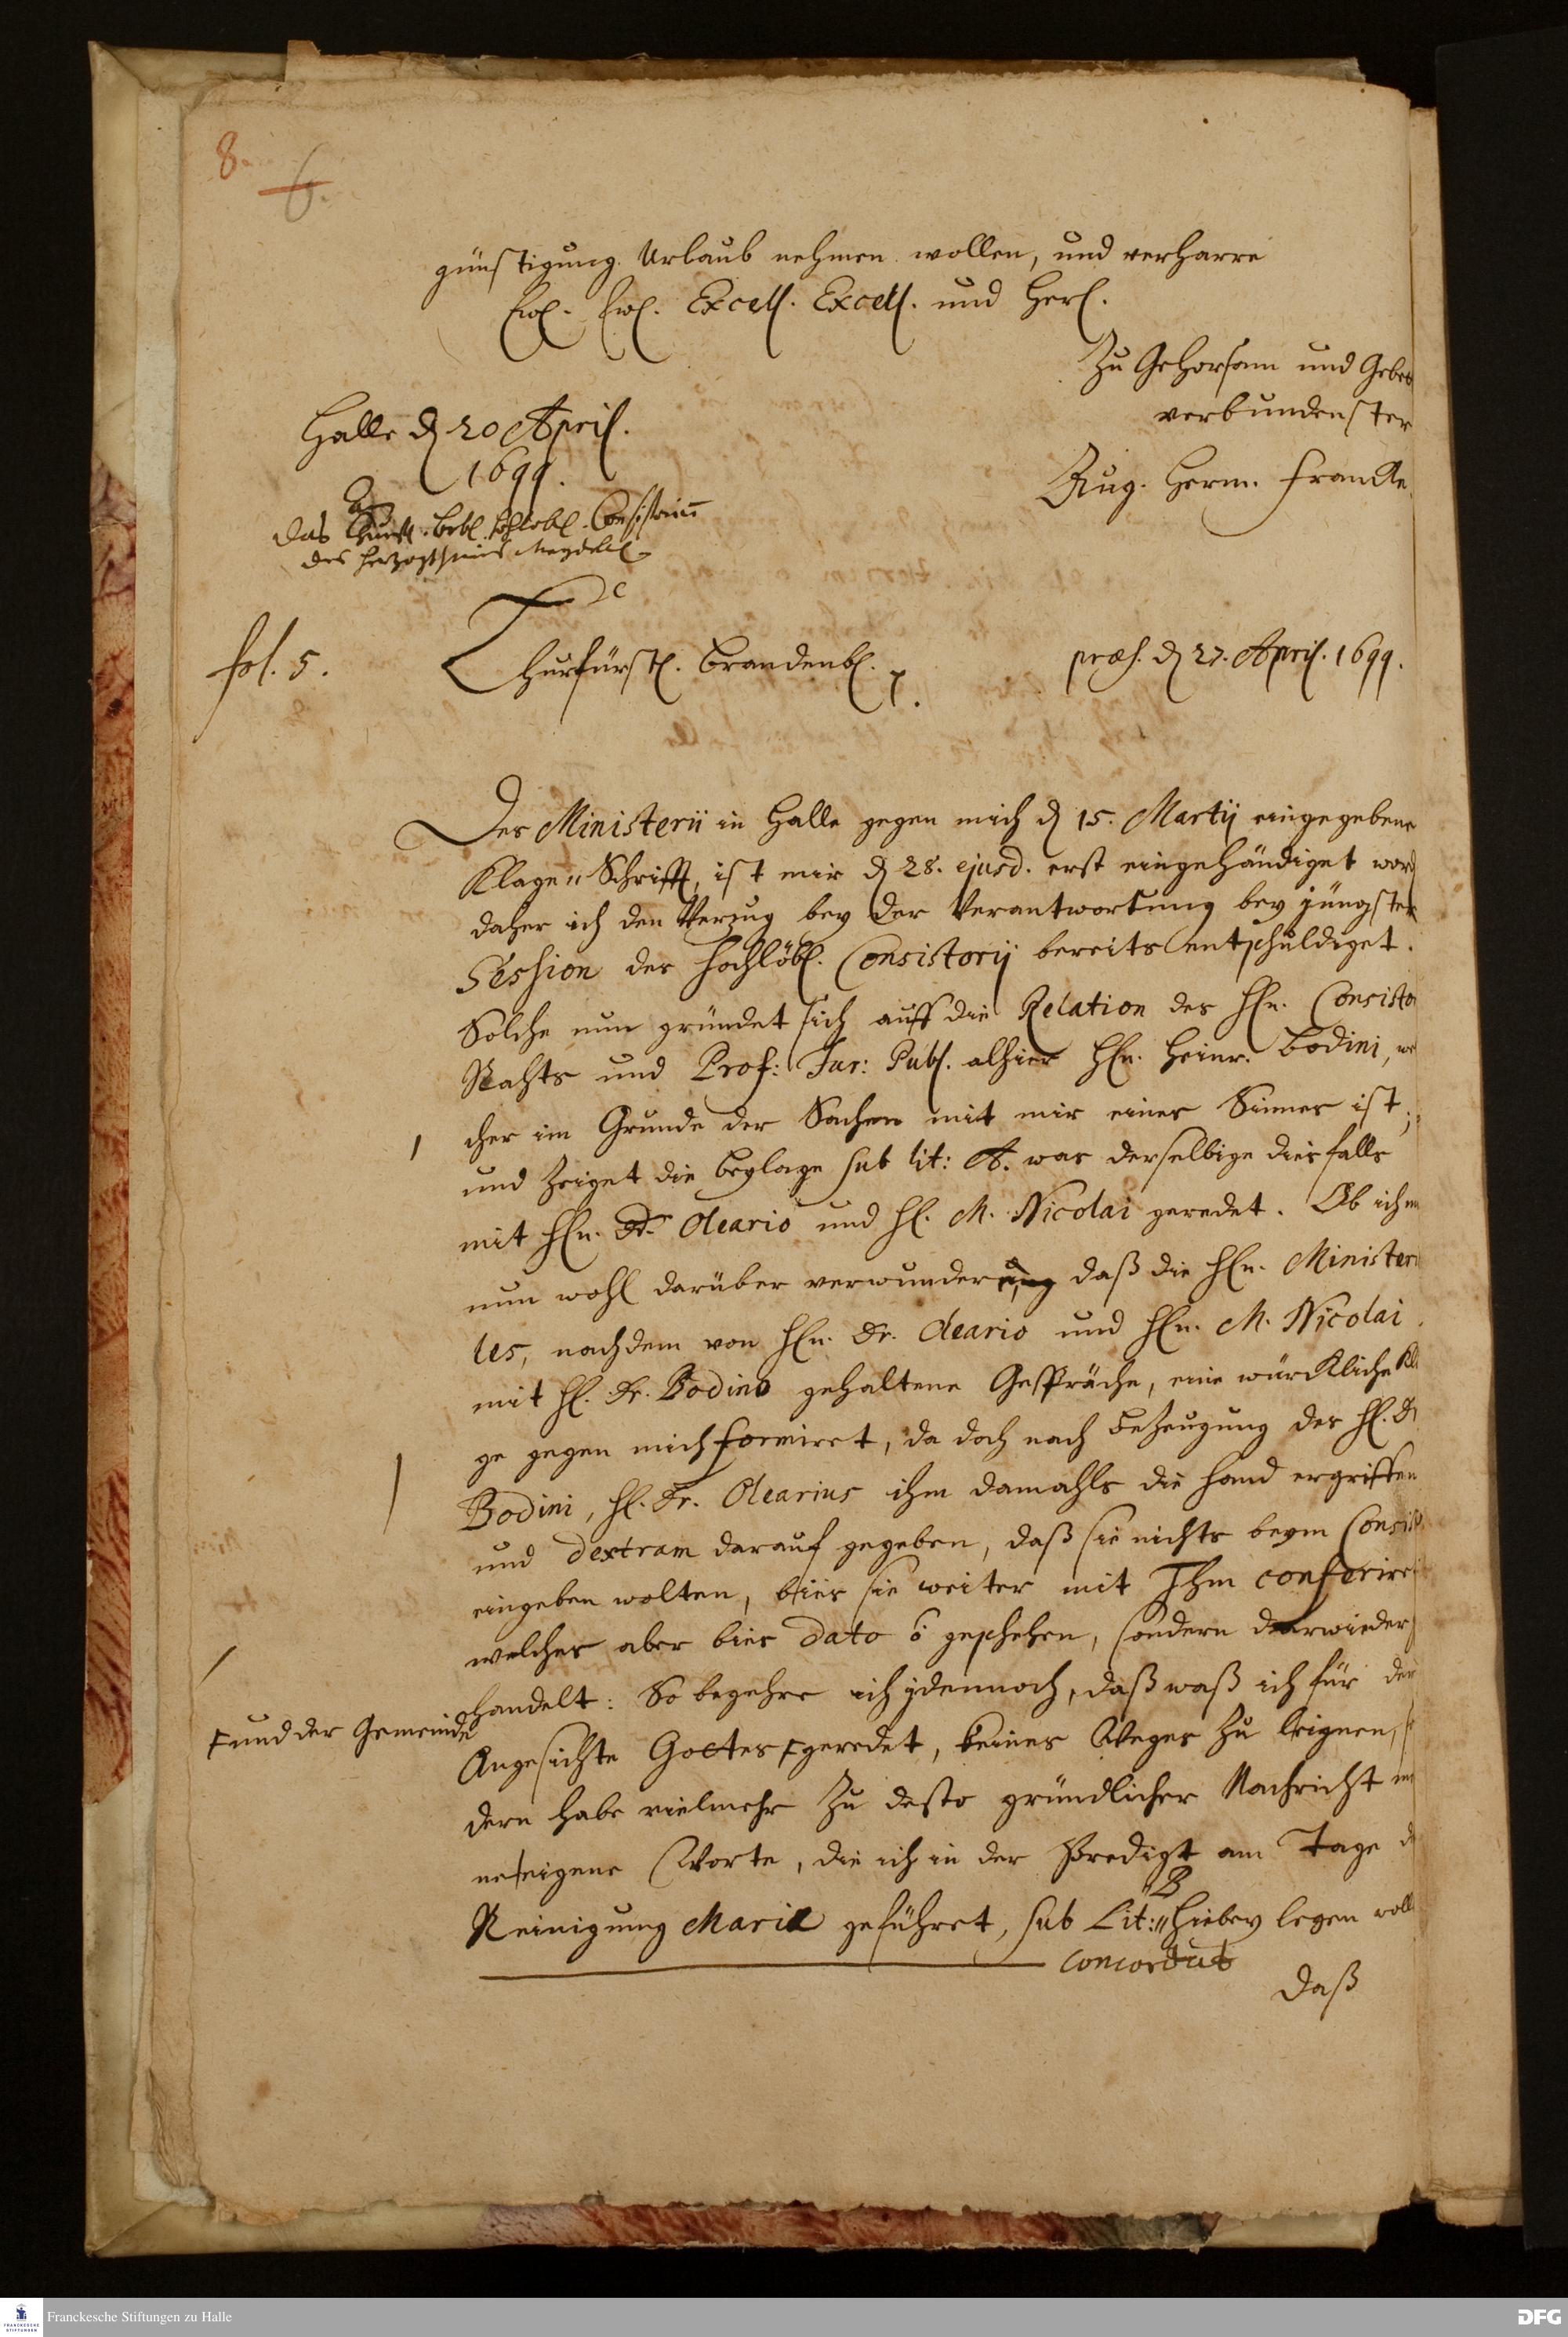 8.
6.
günstigung Urlaub nehmen wollen, und verharre
Ew. Ew. Excell. Excell. und Herl.
Zu Gehorsam und Gebet
verbundenster
Halle d 20 April.
1699.
Aug. Herm. Francke.
An
das Churfl. Brbl. hochlobl. Consistorium
des Herzogthums Magdeb.
fol. 5.
Churfürstl. Brandenbl. p.
præs. d 27. April. 1699.
Des Ministerii in Halle gegen mich d 15. Martij eingegebene
Klage„Schrifft, ist mir d 28. ejusd. erst eingehändiget word
daher ich den Verzug bey der Verantwortung bey jüngster
Session des hochlöbl. Consistorij bereits entschuldiget.
Solche nun gründet sich auff die Relation des Hn. Consisto
Rahts und Prof: Jur: Publ. alhier Hn. Heinr. Bodini, wel
cher im Grunde der Sachen mit mir eines Sinnes ist;
und zeiget die Beylage sub lit: A. was derselbige diesfalls
mit Hn. D. Oleario und H. M. Nicolai geredet. Ob ich m
nun wohl darüber verwundere, daß die Hn. Ministeri
les, nachdem von Hn. Dr. Oleario und Hn. M. Nicolai
mit H. Dr. Bodino gehaltene Gespräche, eine würckliche Kla
ge gegen mich formiret, da doch nach Bezeugung des H. D
Bodini, H. Dr. Olearius ihm damahls die Hand ergriffen
und dextram darauf gegeben, daß sie nichts beym Consist
eingeben wolten, bies sie weiter mit Ihm conferiret
welches aber bies dato ō geschehen, sondern darwieder
handelt: So begehre ich jdennoch, daß waß ich für dem
Ꞙ und der Gemeinde
Angesichte Gottes Ꞙ geredet, keines Weges zu leignen, s
dern habe vielmehr zu desto gründlicher Nachricht mei
ne eigene Worte, die ich in der Predigt am Tage de
Reinigung Mariæ geführet, sub Lit: „B hiebey legen woll
concordat
daß
Franckesche Stiftungen zu Halle
FRANCKESCHE STIFTUNGEN
DFG